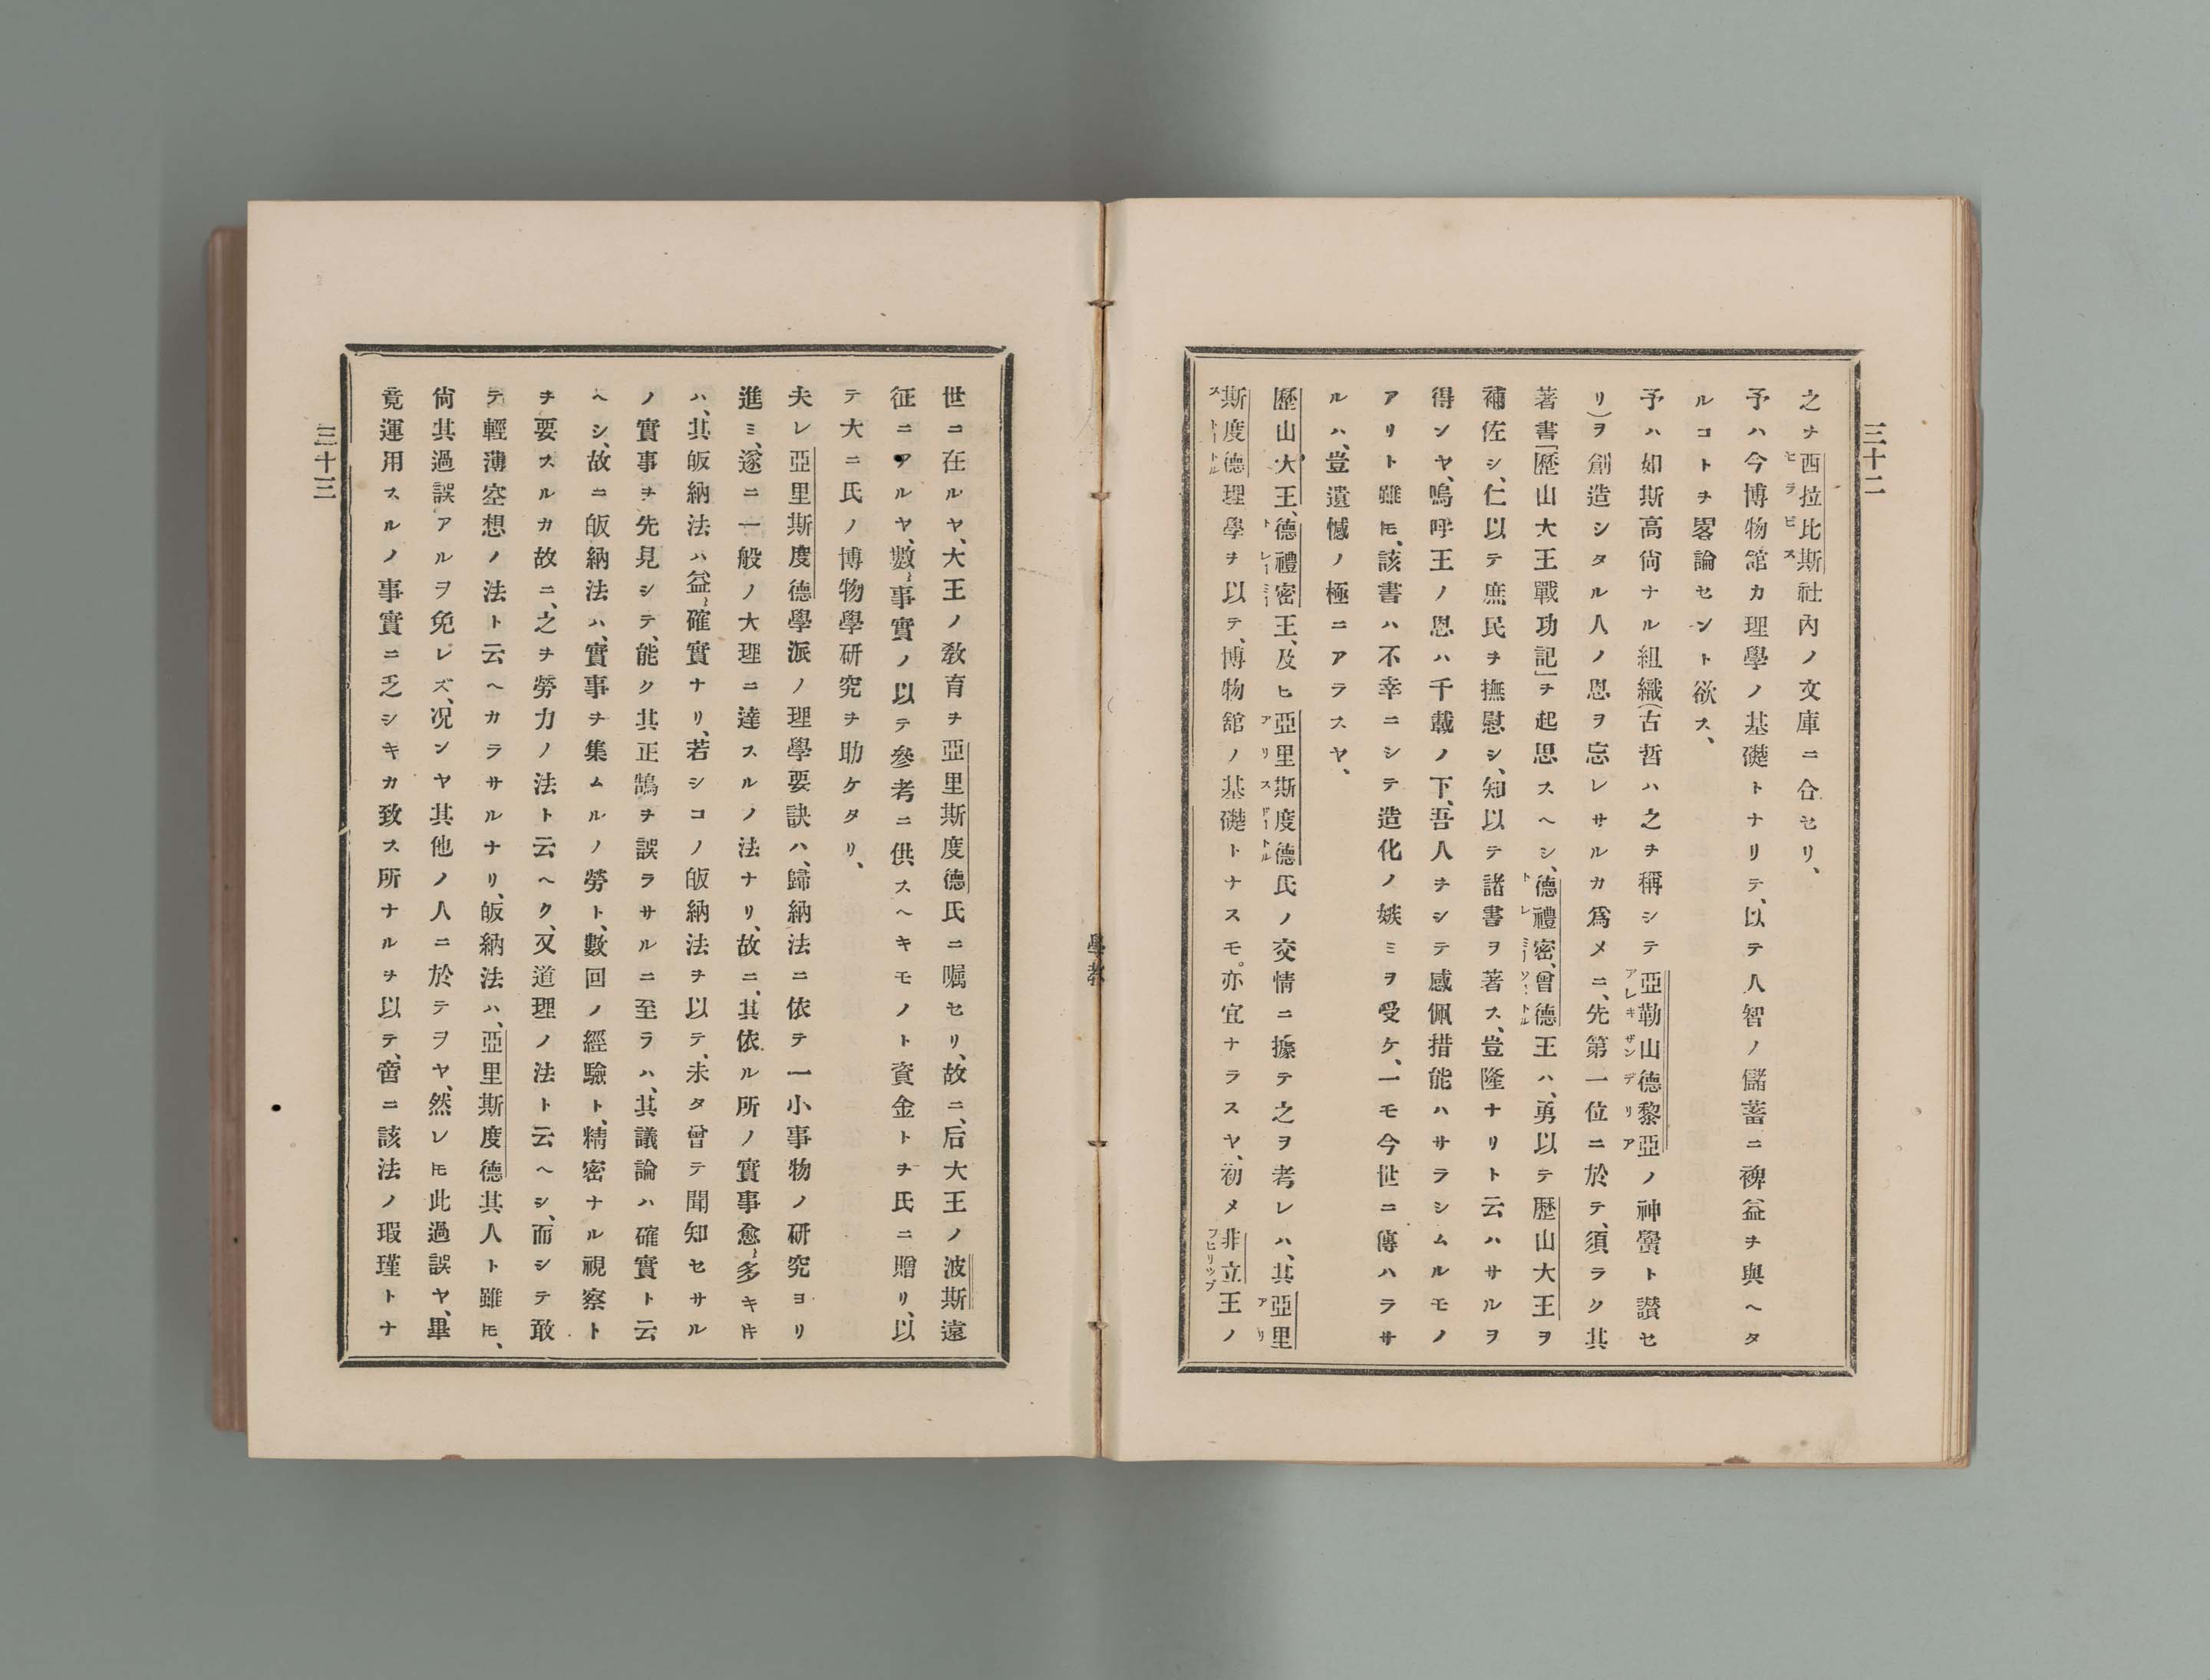 三十二
之ヲ西拉比斯社內ノ文庫ニ合セリ、
予ハ今博物舘カ理學ノ基礎トナリテ、以テ人智ノ儲蓄ニ裨益ヲ與ヘタ
ルコトヲ畧論セント欲ス、
予ハ如斯高尙ナル組織(古哲ハ之ヲ稱シテ亞勒山德黎亞ノ神釁ト讃セ
リ)ヲ創造シタル人ノ恩ヲ忘レサルカ爲メニ、先第一位ニ於テ、須ラク其
著書「歷山大王戰功記」ヲ起思スヘシ、德禮密、曾德王ハ、勇以テ歷山大王ヲ
補佐シ、仁以テ庶民ヲ撫慰シ、知以テ諸書ヲ著ス、豈隆ナリト云ハサルヲ
得ンヤ、嗚呼王ノ恩ハ千載ノ下、吾人ヲシテ感佩措能ハサラシムルモノ
アリト雖𪜈、該書ハ不幸ニシテ造化ノ嫉ミヲ受ケ、一モ今世ニ傳ハラサ
ルハ、豈遺憾ノ極ニアラスヤ、
歷山大王、德禮密王、及ヒ亞里斯度德氏ノ交情ニ據テ之ヲ考レハ、其亞里
斯度德理學ヲ以テ、博物舘ノ基礎トナスモ。亦宜ナラスヤ、初メ非立王ノ
學教
世ニ在ルヤ、大王ノ敎育ヲ亞里斯度德氏ニ嘱セリ、故ニ、后大王ノ波斯遠
征ニアルヤ、數〻事實ノ以テ參考ニ供スヘキモノト資金トヲ氏ニ贈リ、以
テ大ニ氏ノ博物學硏究ヲ助ケタリ、
夫レ亞里斯度德學派ノ理學要訣ハ、歸納法ニ依テ一小事物ノ硏究ヨリ
進ミ、遂ニ一般ノ大理ニ達スルノ法ナリ、故ニ、其依ル所ノ實事愈〻多キ𪜈
ハ、其皈納法ハ益〻確實ナリ、若シコノ皈納法ヲ以テ、未タ曾テ聞知セサル
ノ實事ヲ先見シテ、能ク其正鵠ヲ誤ラサルニ至ラハ、其議論ハ確實ト云
ヘシ、故ニ皈納法ハ、實事ヲ集ムルノ勞ト、數回ノ經驗ト、精密ナル視察ト
ヲ要スルカ故ニ、之ヲ勞力ノ法ト云ヘク、又道理ノ法ト云ヘシ、而シテ敢
テ輕薄空想ノ法ト云ヘカラサルナリ、皈納法ハ、亞里斯度德其人ト雖𪜈、
尙其過誤アルヲ免レズ、况ンヤ其他ノ人ニ於テヲヤ、然レ𪜈此過誤ヤ、畢
竟運用スルノ事實ニ乏シキカ致ス所ナルヲ以テ、啻ニ該法ノ瑕瑾トナ
三十三